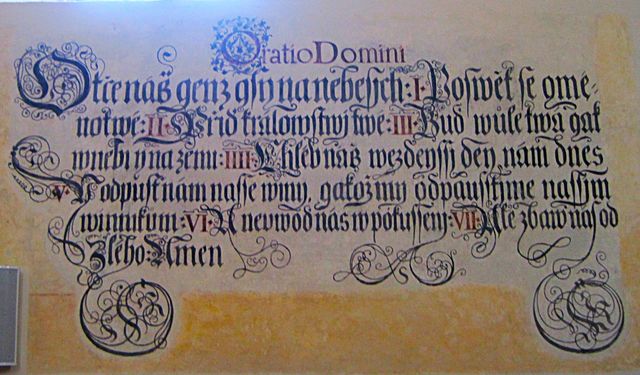 Oratio Domini
Otče náš genž gsy na nebesých: I. Poswěť se gmé-
no twé: II. Přiď králowstwj twé: III. Buď wůle twá gak
w nebi y na zemi: IIII. Chléb náš wezdeyssj dey nám dnes
V. Y odpusť nám nasse winy, gakož my odpausstjme nassjm
winnikum: VI. A neuwoď nás w pokussenj: VII. Ale zbaw nás od
Zlého: Amen